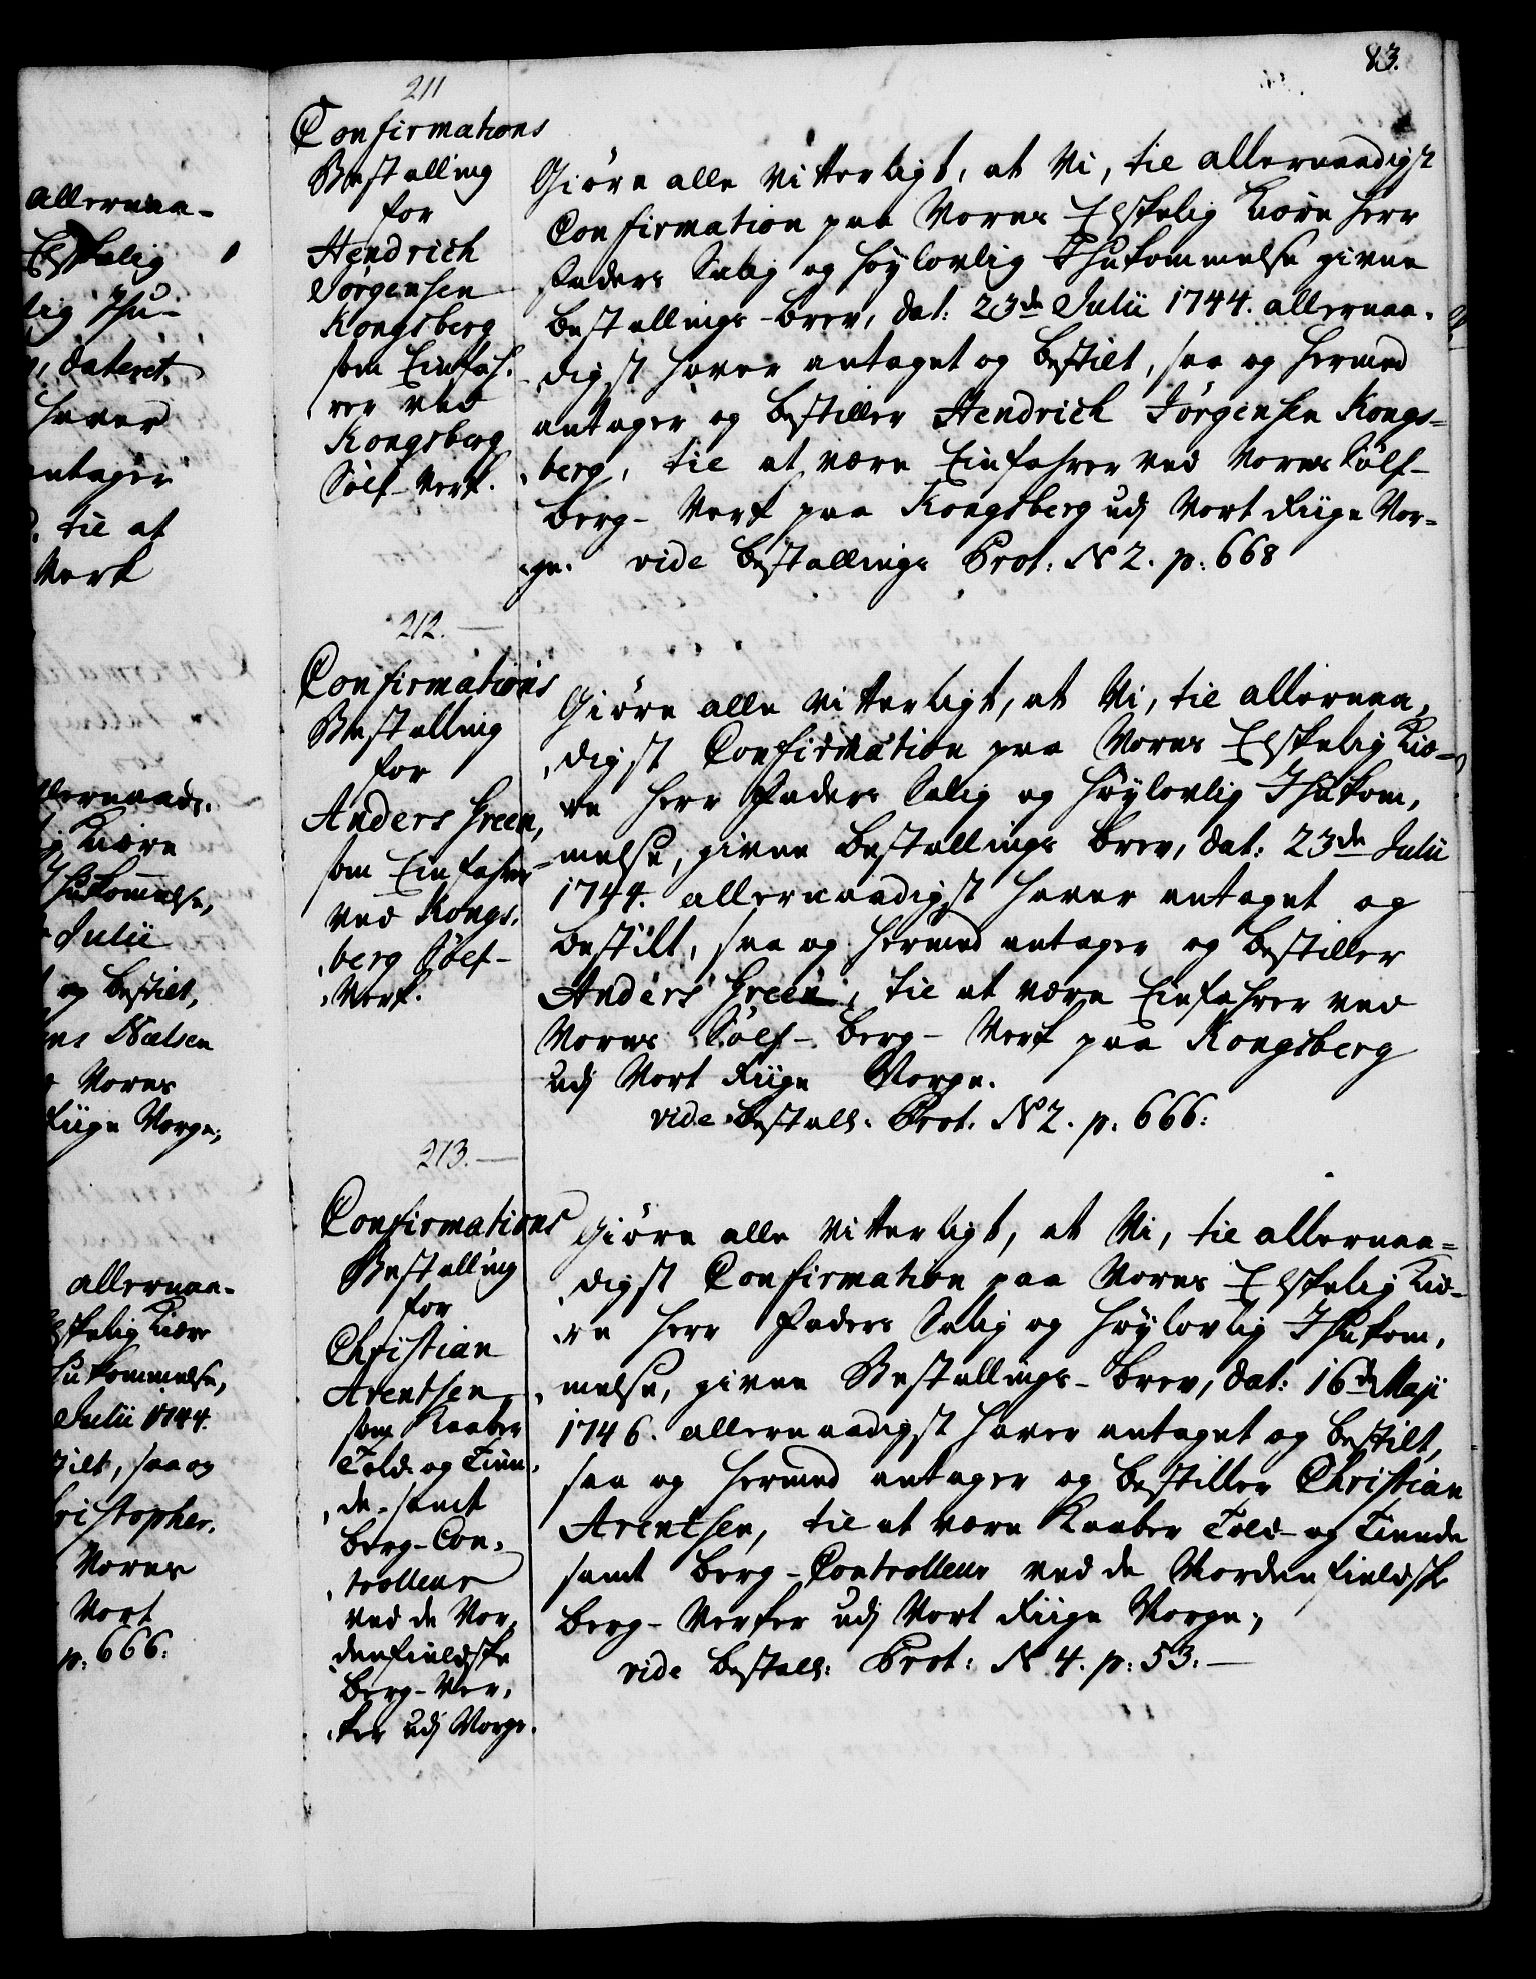 83.
allernaa-
Elskelig
lig Ihu-
dateret
haver
antager
til at
Werk
Allernaads.
Kiære
Ihukommelse,
Julii
og bestilt,
Nielsen
Vores
Riige Norge,
allernaa-
Elskelig Kiære
Ihukommelse,
Julii 1744.
stilt, saa og
Christopher
Vores
Vort
p: 666.
211
Confirmations
Bestalling
for
Hendrich
Jörgensen
Kongsberg
som Einfah-
rer ved
Kongsberg
Sölf-Verk.
Giöre alle vitterligt, at Vi, til allernaadigst
Confirmation paa Vores Elskelig Kiäre Herr
Faders Salig og Höylovlig Ihukommelse givne
Bestallings-Brev, dat: 23de Julii 1744. allernaa-
digst haver antaget og bestilt, saa og hermed
antager og bestiller Hendrich Jörgensen Kongs=
berg, til at være Einfahrer ved Vores Sölf-
berg-Verk paa Kongsberg udj Vort Riige Nor=
ge. vide Bestallings Prot: N 2. p: 668
212.
Confirmations
Bestalling
for
Anders Green,
som Einfahrer
ved Kongs-
berg Sölf-
Verk.
Giöre alle vitterligt, at Vi, til allernaa-
digst Confirmation paa Vores Elskelig Kiæ-
re Herr Faders Salig og Höylovlig Ihukom-
melse, givne Bestallings Brev, dat: 23de Julii
1744. allernaadigst haver antaget og
bestilt, saa og hermed antager og bestiller
Anders Green, til at være Einfahrer ved
Vores Sölf-berg-Verk paa Kongsberg
udj Vort Riige Norge.
vide Bestall. Prot. N 2. p. 666:
213.
Confirmations
Bestalling
for
Christian
Arentsen
som Kaaber
Told og Tiin-
de- samt
Berg-Con-
trolleur
ved de Nor-
denfieldske
Berg-Ver-
ker udj Norge.
Giöre alle vitterligt, at Vi, til allernaa=
digst Confirmation paa Vores Elskelig Kiæ-
re Herr Faders Salig og Höylovlig Ihukom-
melse, givne Bestallings-Brev, dat: 16de Maji
1746. allernaadigst haver antaget og bestilt,
saa og hermed antager og bestiller Christian
Arentsen, til at være Kaaber Told- og Tiende
samt Berg-Controlleur ved de Nordenfieldske
Berg-Verker udj Vort Riige Norge,
vide Bestall: Prot: N 4. p: 53.